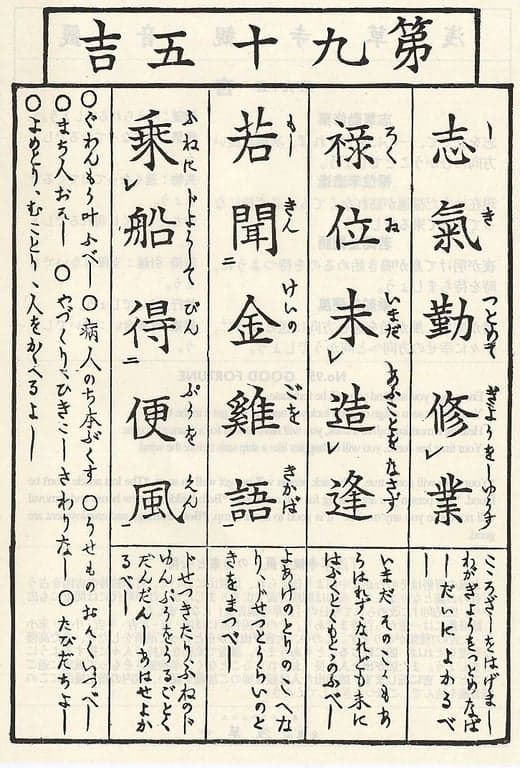 第九十五吉
志氣勤修レ業
しき つとめて ぎようをしうす
祿位未レ造レ逢
ろくゐ いまだ あふことをなさず
若聞二金雞語
もし きん けいの ごを きかば
乘レ船得二便風
ふねにじようして びん ぷうを えん
こころざしをはげまし
わがぎようをつとめなば
しだいによしかるべ
し
いまだそのくらゐもあ
らはれずなれども末に
はふくとくもとるべし
よあけのとりのこへな
り、じせつとうらいのと
きをまつべし
じせつきたりふねのじ
ゆんぷうをうるごとく
だんだんしあはせよか
るべし
○ぐわんもう叶ふべし○病人のち本ぶくす○うせものおそくいづべし
○まち人おそし○やづくり、ひきこしさわりなし○たびだちよし
○よめとり、むことり、人をかゝへるよし